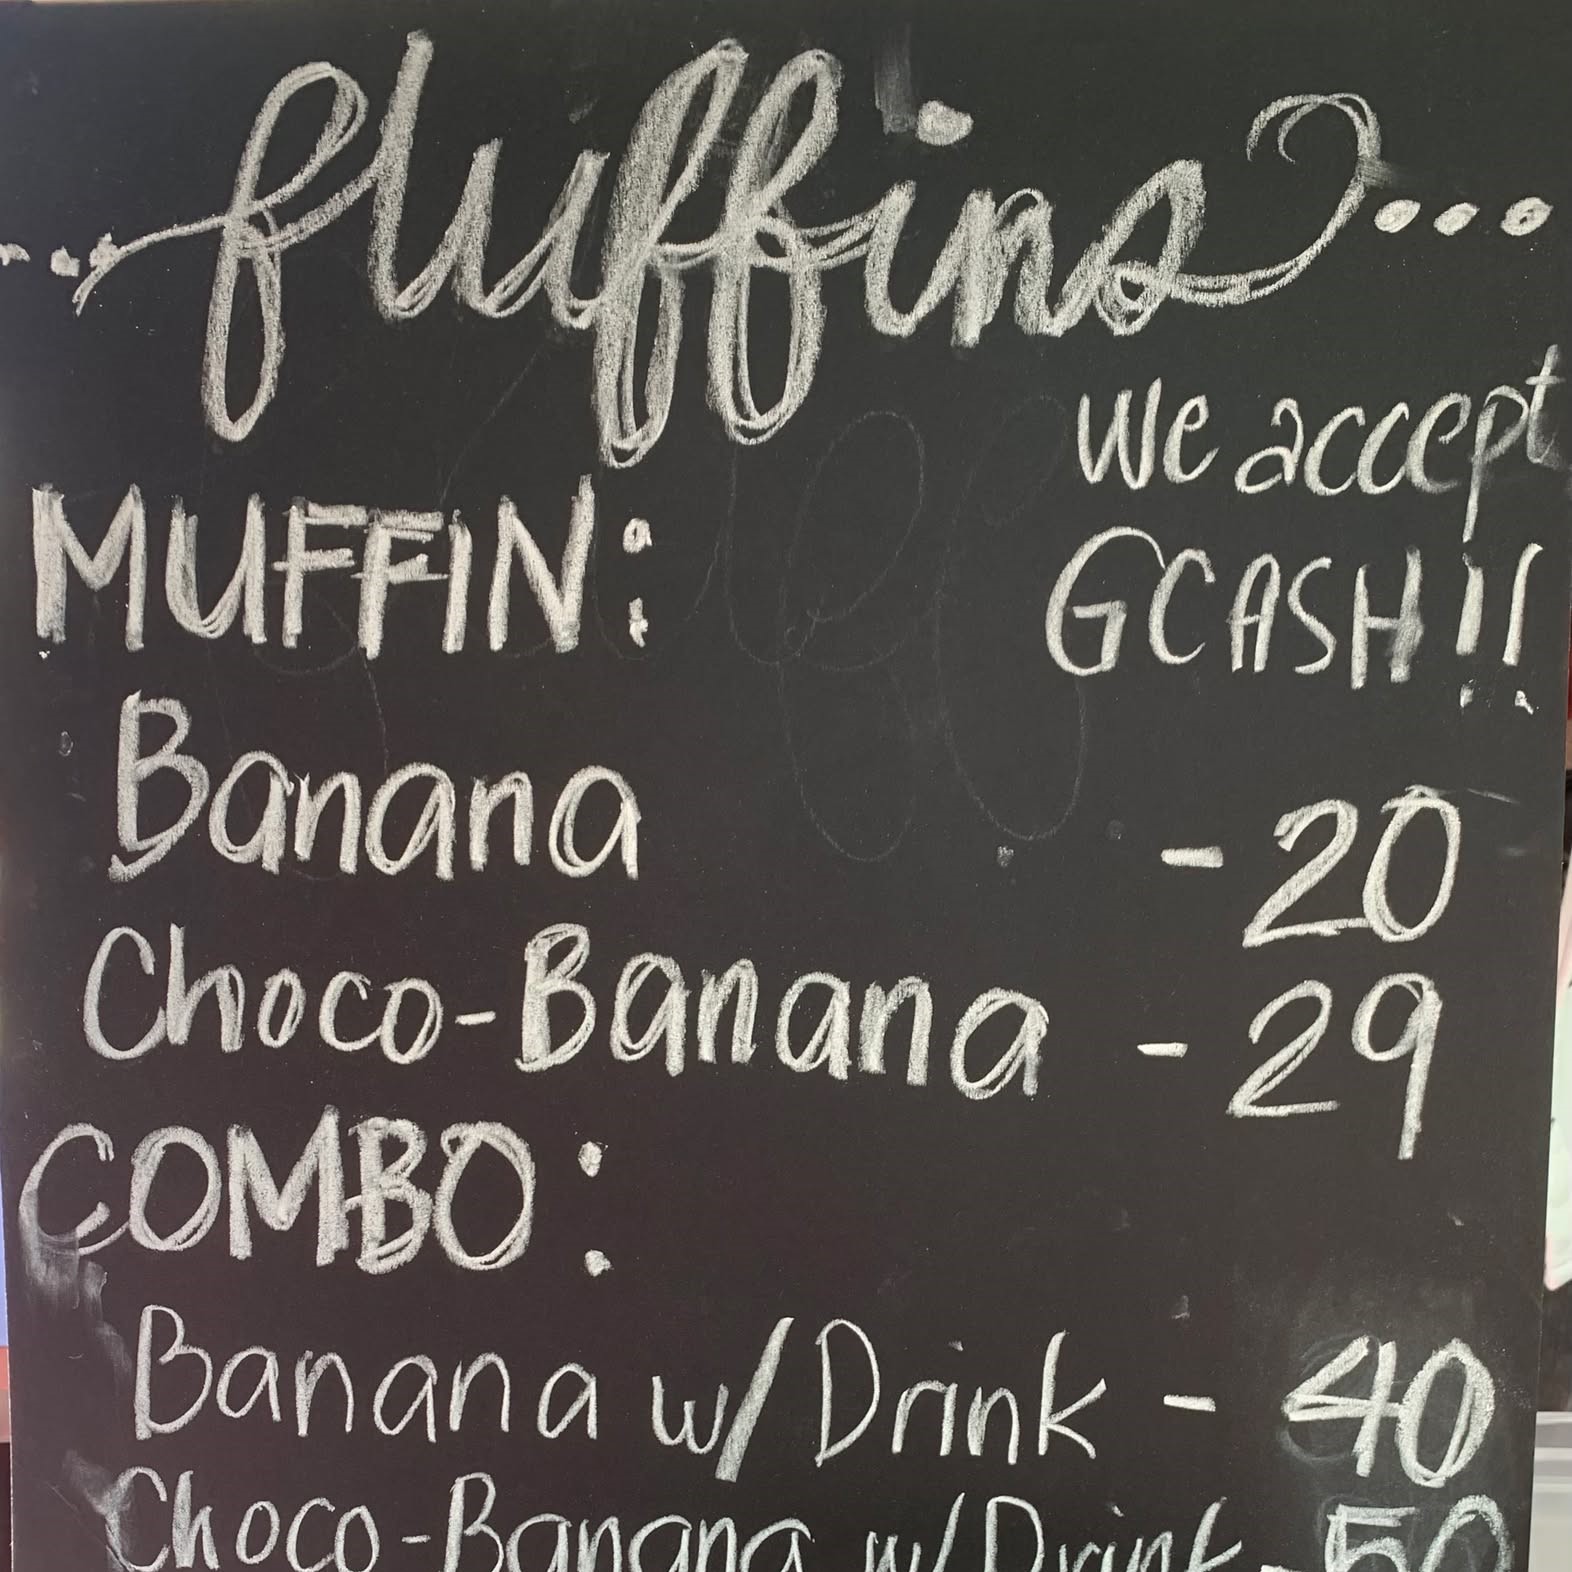 ...fluffins...
We accept
GCASH!!
MUFFIN:
Banana - 20
Choco-Banana - 29
COMBO:
Banana w/ Drink - 40
Choco-Banana w/ Drink - 50